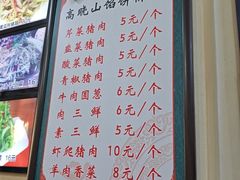 高晓山馅饼
芹菜猪肉 5元/个
韭菜猪肉 5元/个
酸菜猪肉 5元/个
青椒猪肉 5元/个
牛肉圆葱 6元/个
肉三鲜 6元/个
素三鲜 5元/个
虾爬猪肉 10元/个
羊肉香菜 8元/个